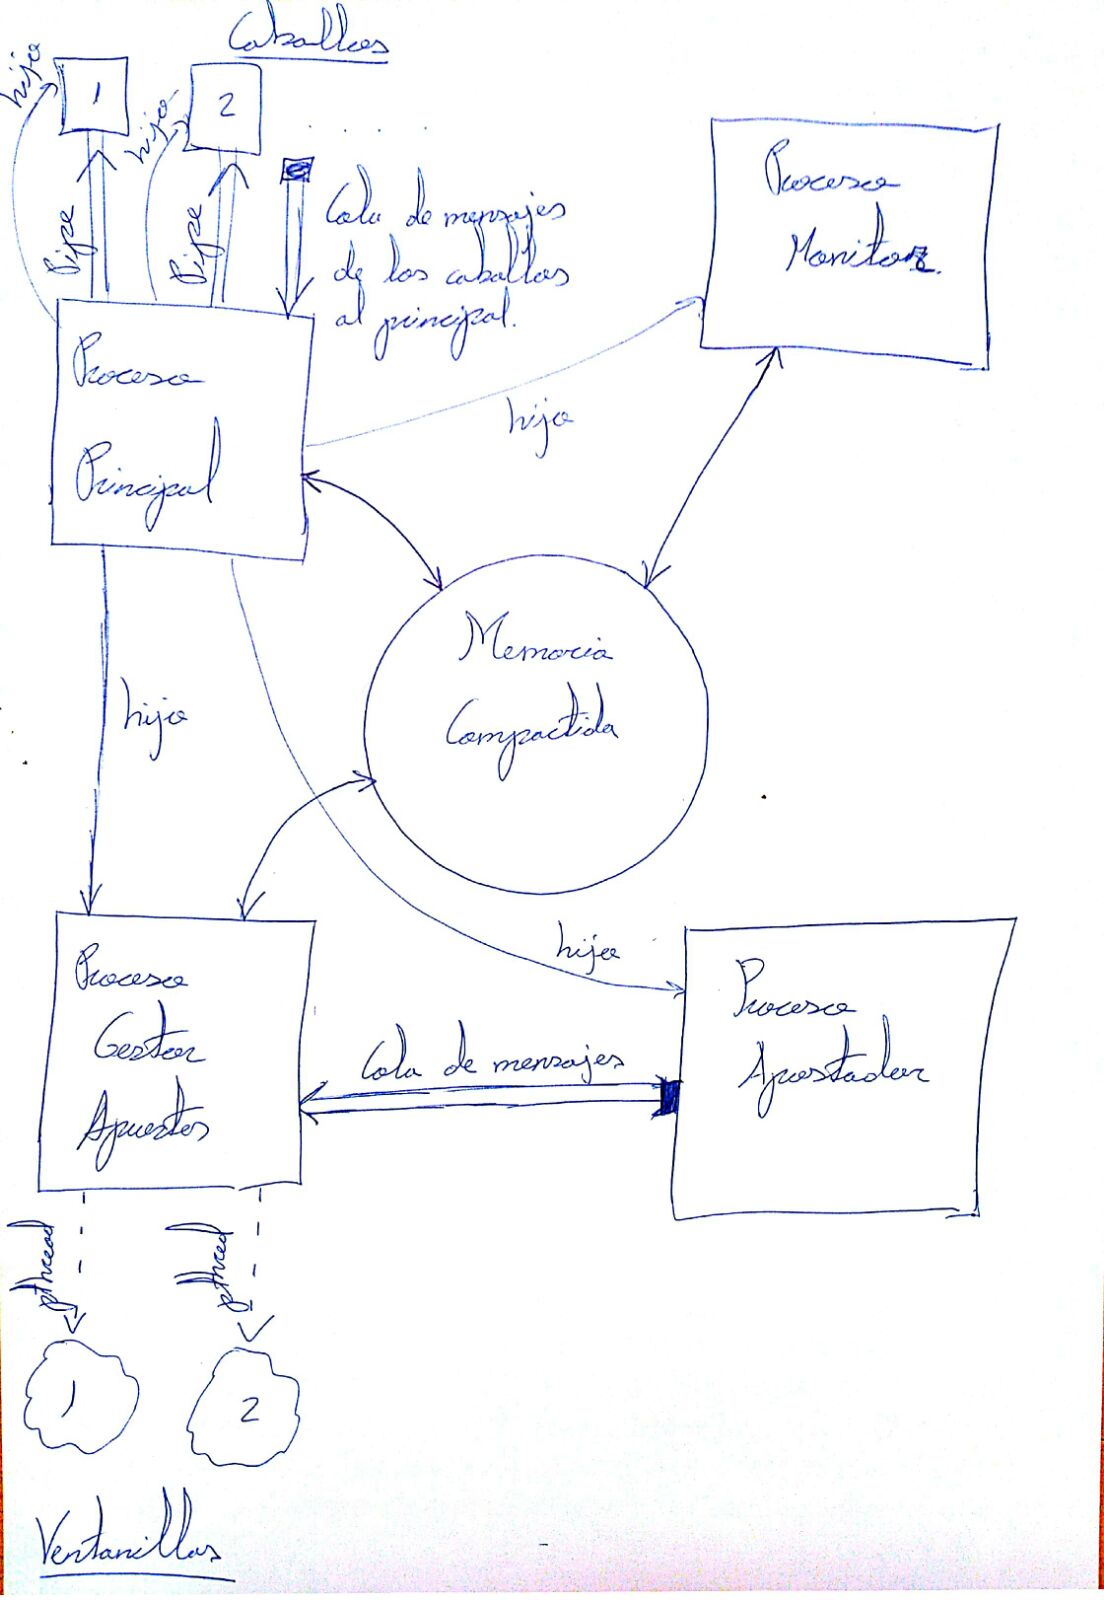 Caballos
hijo
1
hijo
2
Pipe
Pipe
Cola de mensajes
de los caballos
al principal.
Proceso
Monitor
Proceso
Principal
hijo
hijo
Memoria
Compartida
hijo
Proceso
Gestor
Apuestas
Cola de mensajes
Proceso
Apostador
pthread
pthred
1
2
Ventanillas